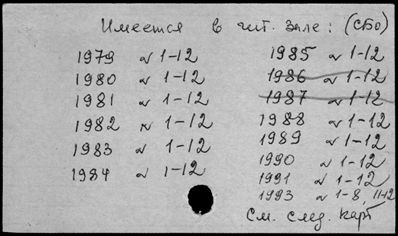 Имеется в чит. зале: (СБО)
1979 № 1-12
1980 № 1-12
1981 № 1-12
1982 № 1-12
1983 № 1-12
1984 № 1-12
1985 № 1-12
1986 № 1-12
1987 № 1-12
1988 № 1-12
1989 № 1-12
1990 № 1-12
1991 № 1-12
1993 № 1-8, 11-12
См. след. карт